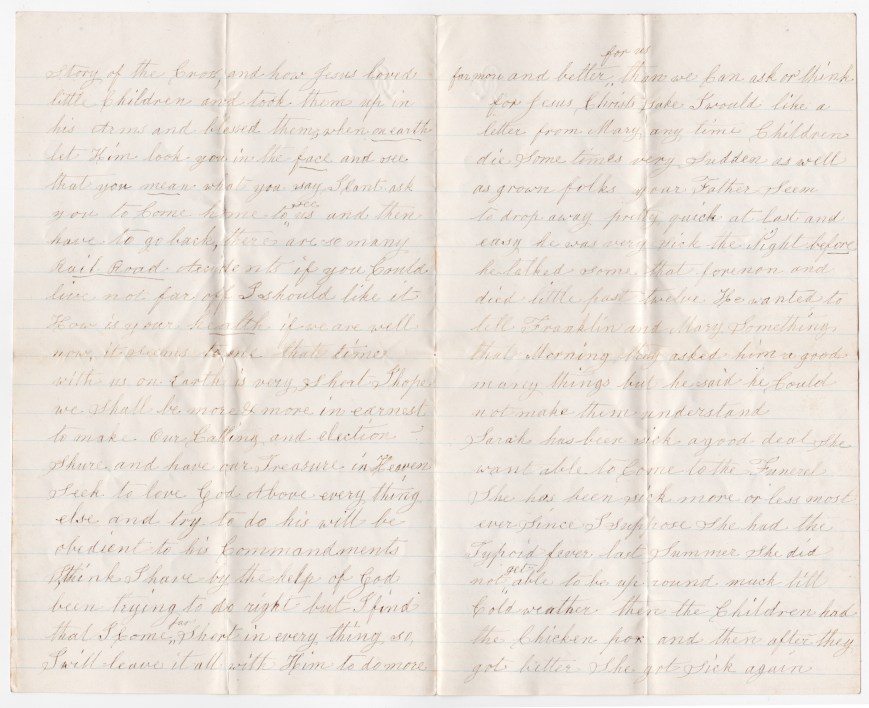 Story of the Cross, and how Jesus loved
little Children and took them up in
his Arms and blessed them, when on earth
let Him look you in the face and see
that you mean what you say, I cant ask
you to Come home to see us and then
have to go back, there are so many
Rail Road Accidents if you Could
live not far off I should like it
How is your health if we are well
now, it seems to me that time
with us on Earth is very short I hope
we shall be more & more in earnest
to make Our Calling and election
Shure, and have our Treasure in Heaven
Seek to love God Above every thing
else and try to do his will be
obedient to his Commandments
I think I have by the help of God
been trying to do right but I find
that I Come far Short in every thing so,
I will leave it all with Him to do more
for us
far more and better, than we Can ask or think
for Jesus, Christs sake I would like a
letter from Mary, any time Children
die Some times very Sudden as well
as grown folks your Father Seem
to drop away pretty quick at last and
easy he was very sick the Night before
he talked some that forenon and
died little past twelve He wanted to
tell Franklin and Mary Something
that Morning they asked him a good
many things but he said he Could
not make them understand
Sarah has been sick a good deal she
want able to Come to the Funerel
She has been sick more or less most
ever since I suppose She had the
Typoid fever last Summer she did
not get able to be up round much till
Cold weather then the Children had
the Chicken pox and then after they
got better she got sick again